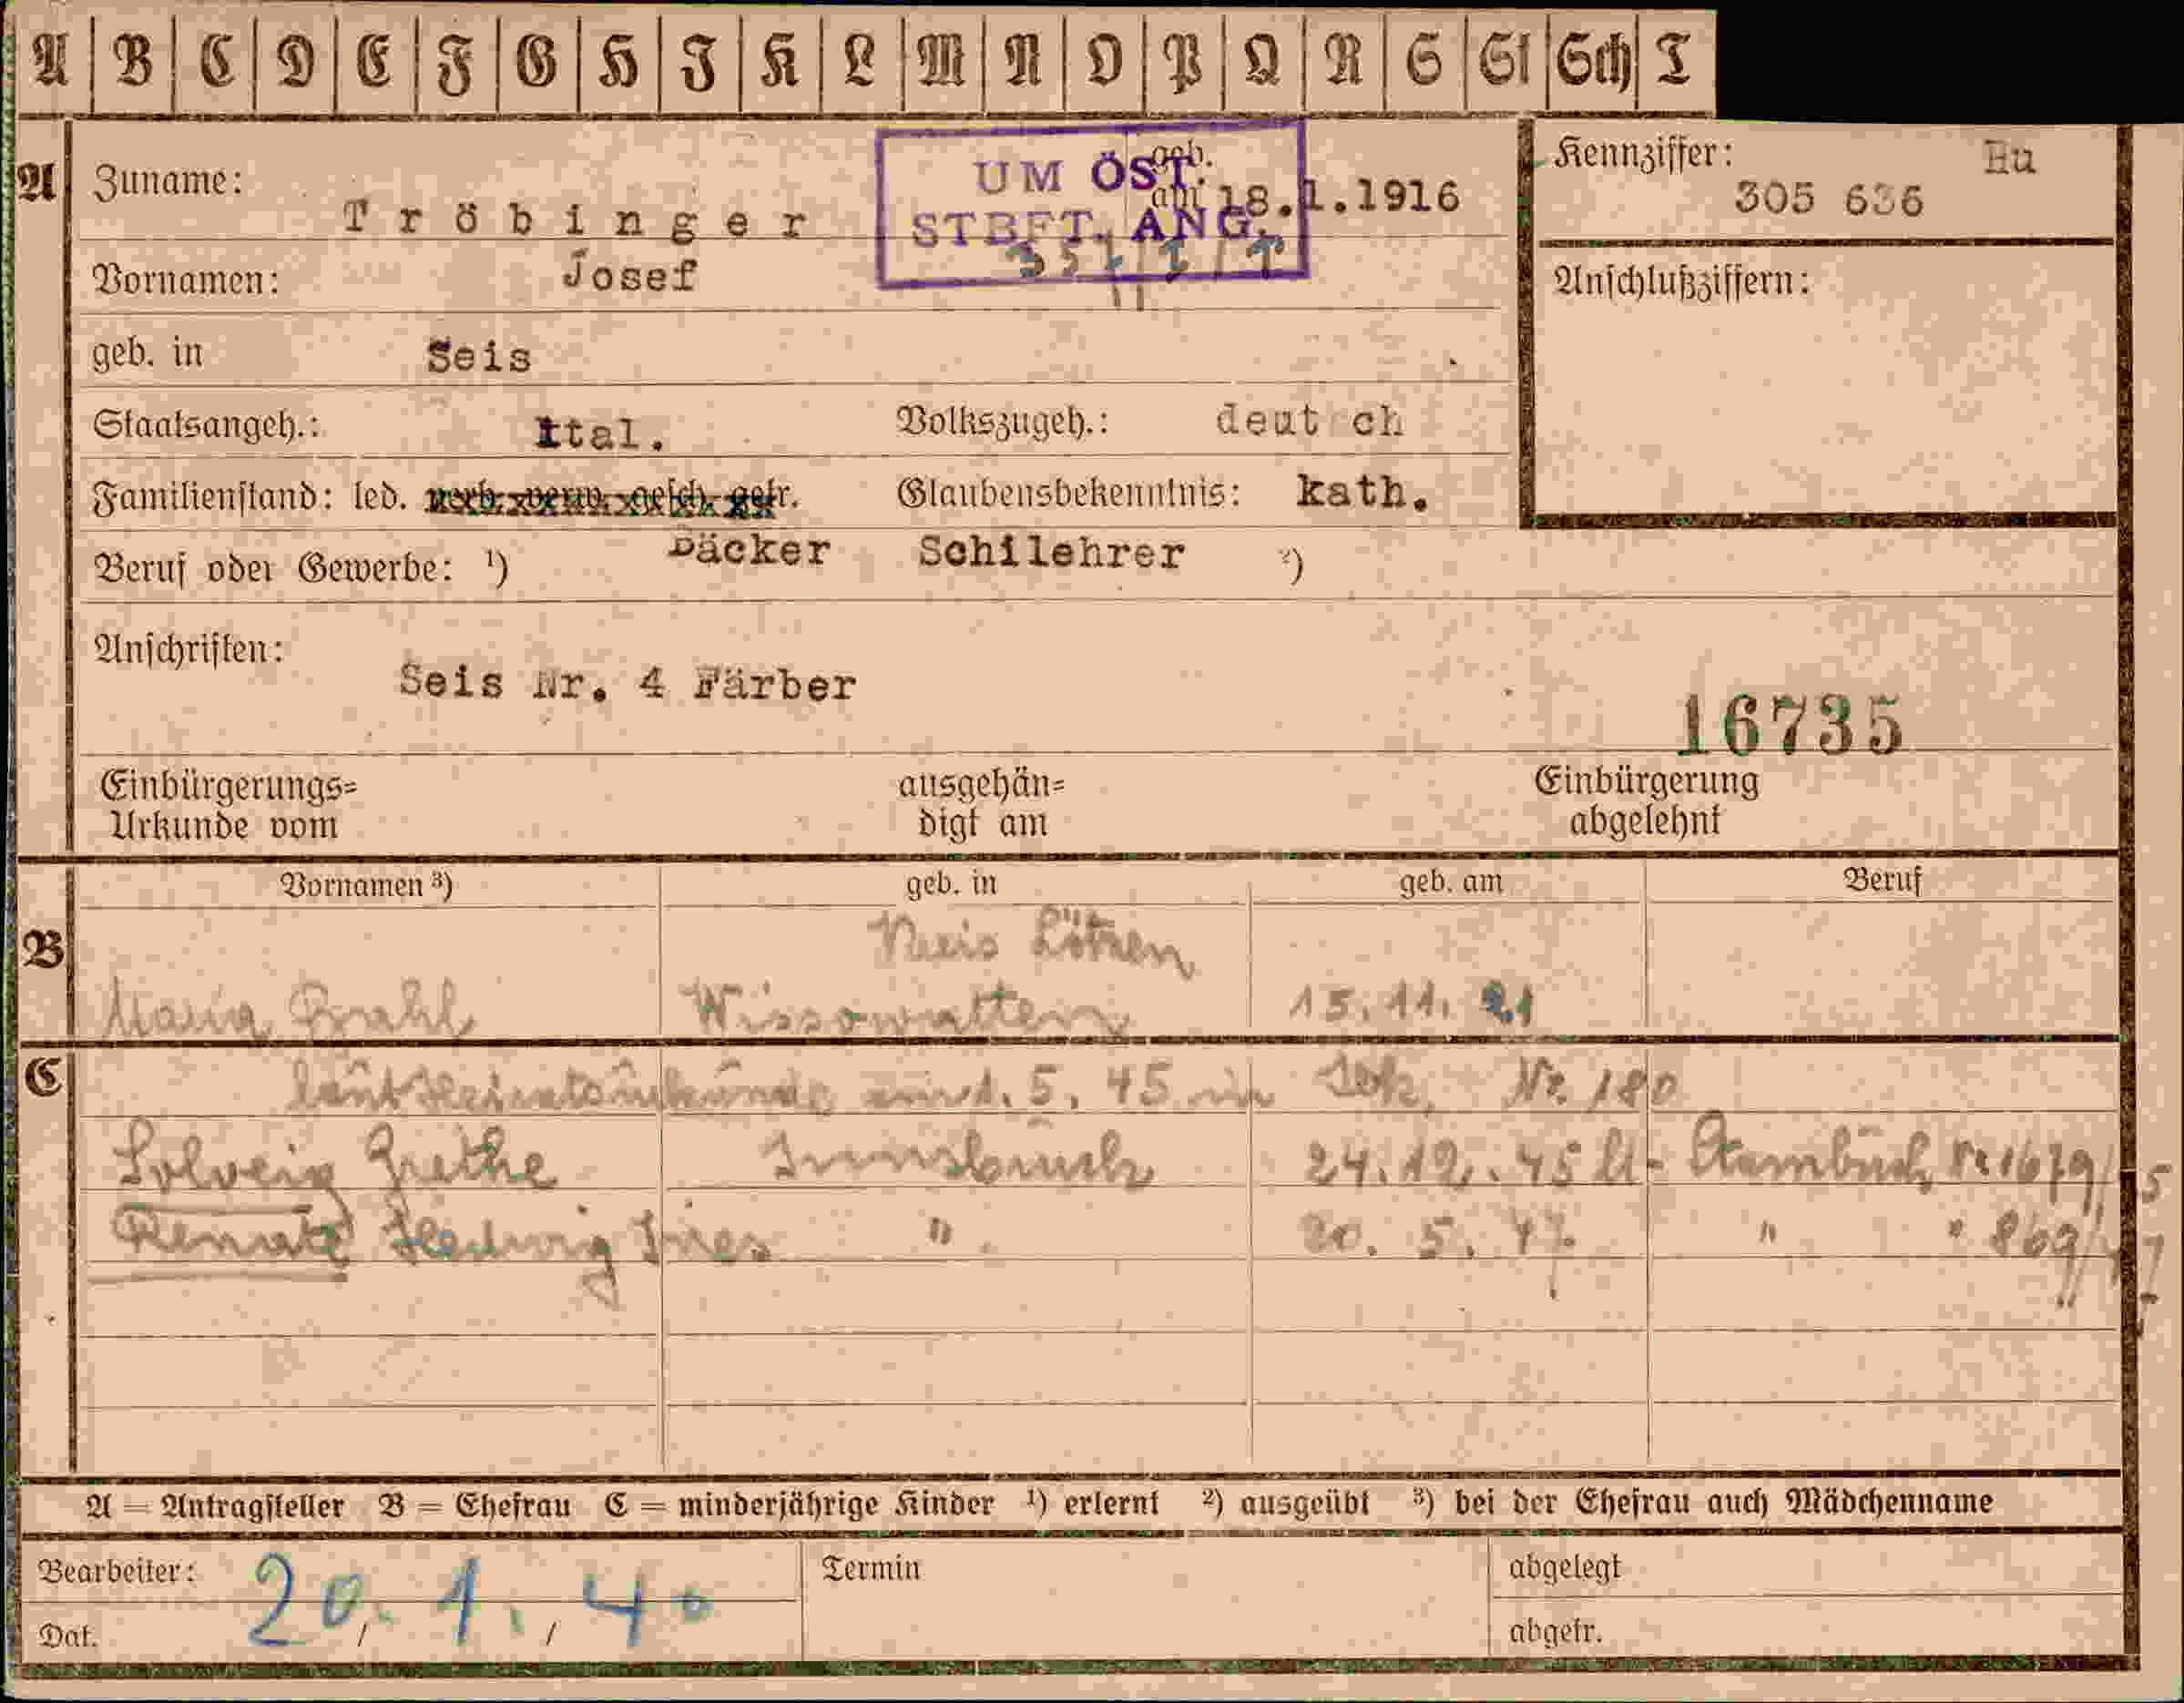 A B C D E F G H I K L M N O P Q R S St Sch T
A
Zuname: Tröbinger
geb. am 18.1.1916
UM ÖST.
STBFT. ANG.
Kennziffer: Hu
305 636
Vornamen: Josef
Anschlußziffern:
geb. in Seis
Staatsangeh.: Ital. Volkszugeh.: deut ch
Familienstand: led. verh. verw. gesch. getr. Glaubensbekenntnis: kath.
Beruf oder Gewerbe: ¹) Bäcker Schilehrer ²)
Anschriften:
Seis Nr. 4 Färber
16735
Einbürgerungs=
Urkunde vom
ausgehän=
digt am
Einbürgerung
abgelehnt
Vornamen ³) geb. in geb. am Beruf
B
Kreis Lötzen
Maria Wissowatten 15. 11. 21
C
laut Heiratsurkunde 1. 5. 45 in Nr. 180
Solveig Grethe Innsbruck 24. 12. 45 lt. Nr 1679/
Renate Hedwig Ines " 20. 5. 47 " " 869/47
A = Antragsteller B = Ehefrau C = minderjährige Kinder ¹) erlernt ²) ausgeübt ³) bei der Ehefrau auch Mädchenname
Bearbeiter: Termin abgelegt
Dat. 20. / 1. / 40 abgetr.